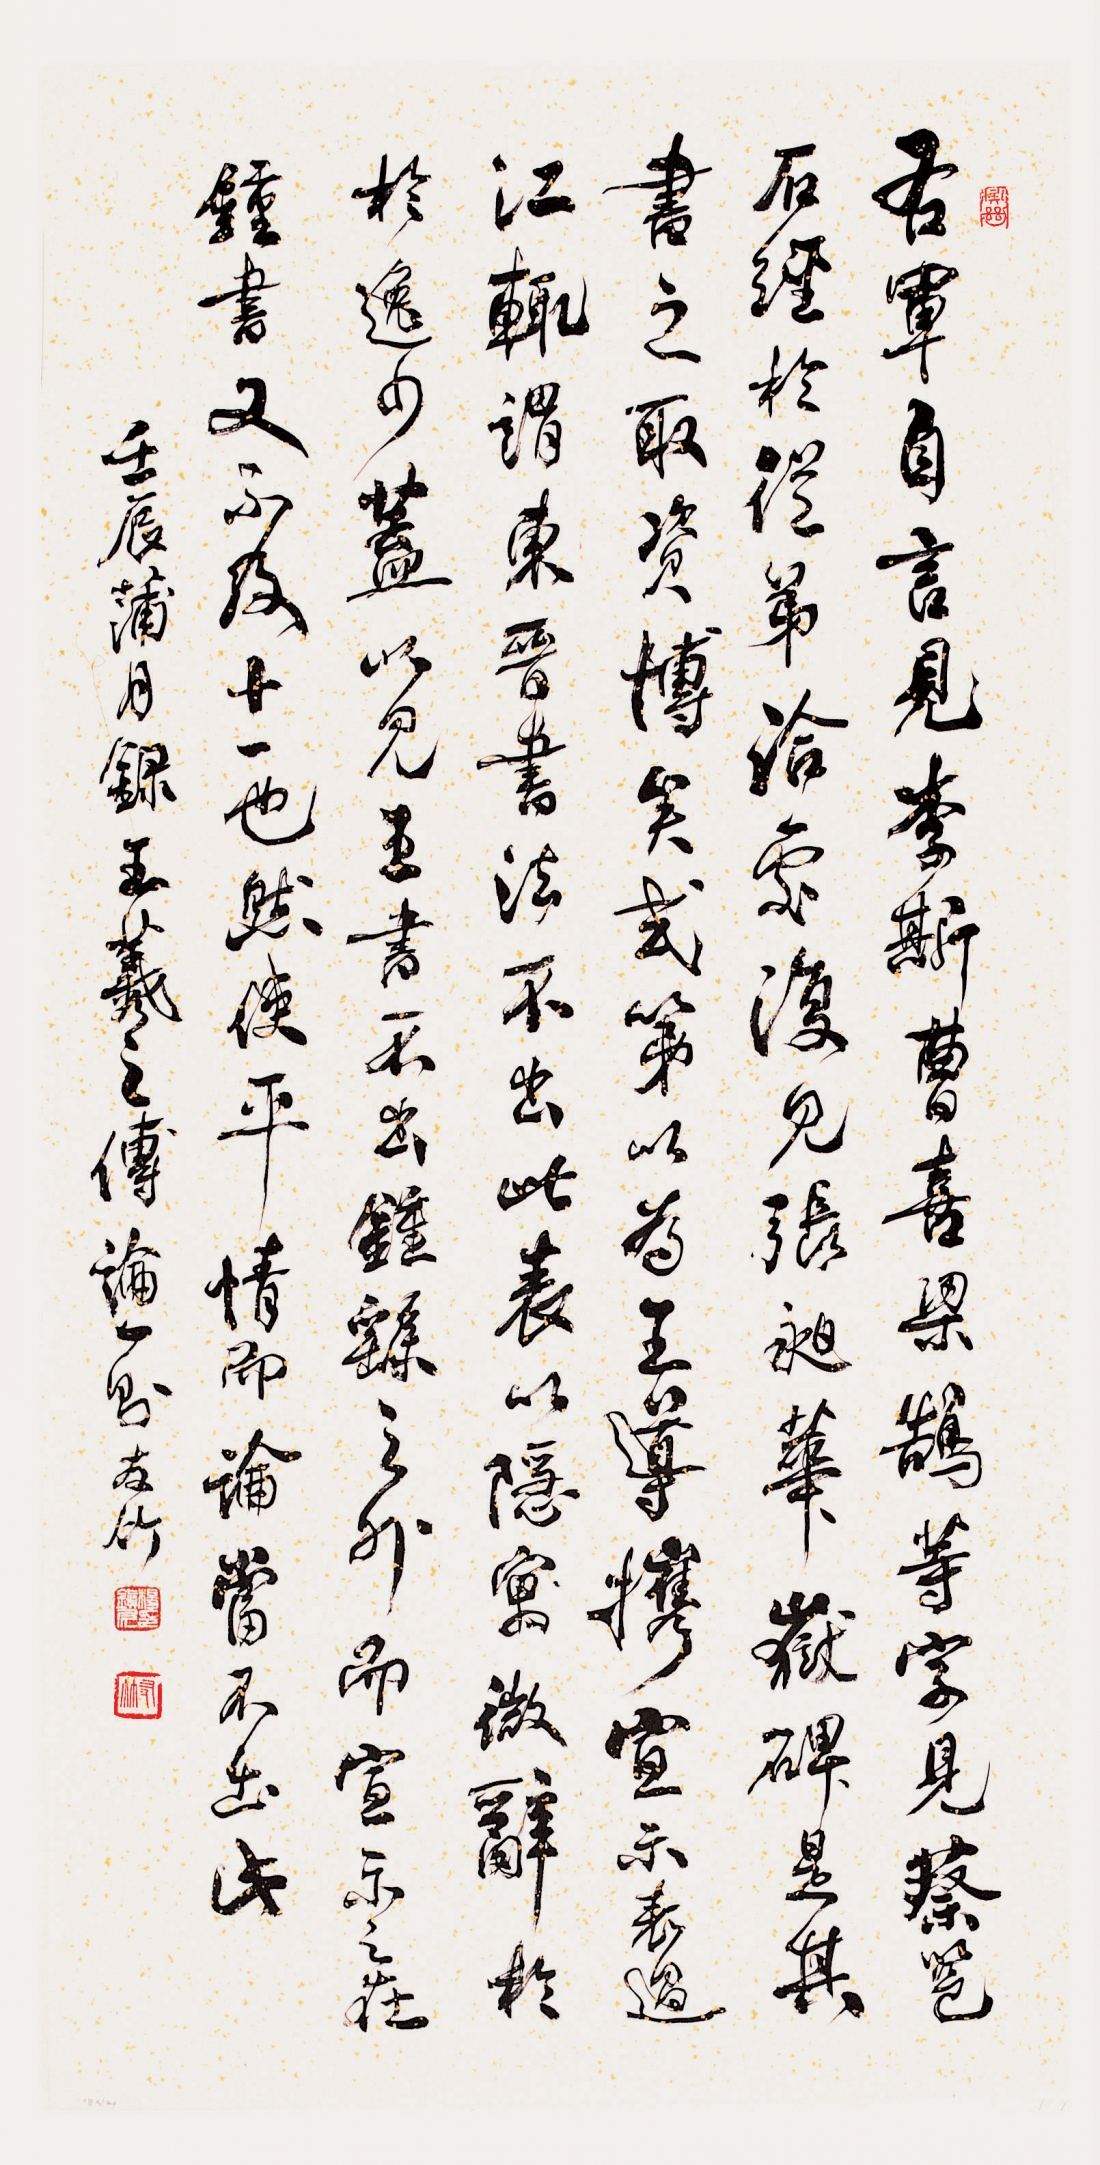 右軍自言見李斯曹喜梁鵠等字見蔡邕
石經於從弟洽處復見張昶華嶽碑是其
書之取資博矣或第以為王導攜宣示表過
江輒謂東晉書法不出此表以隱寓微辭於
於逸少蓋以見王書不出鍾繇之外而宣示之在
鍾書又不及十一也然使平情而論當不出此
壬辰蒲月錄王羲之傳論一則友竹